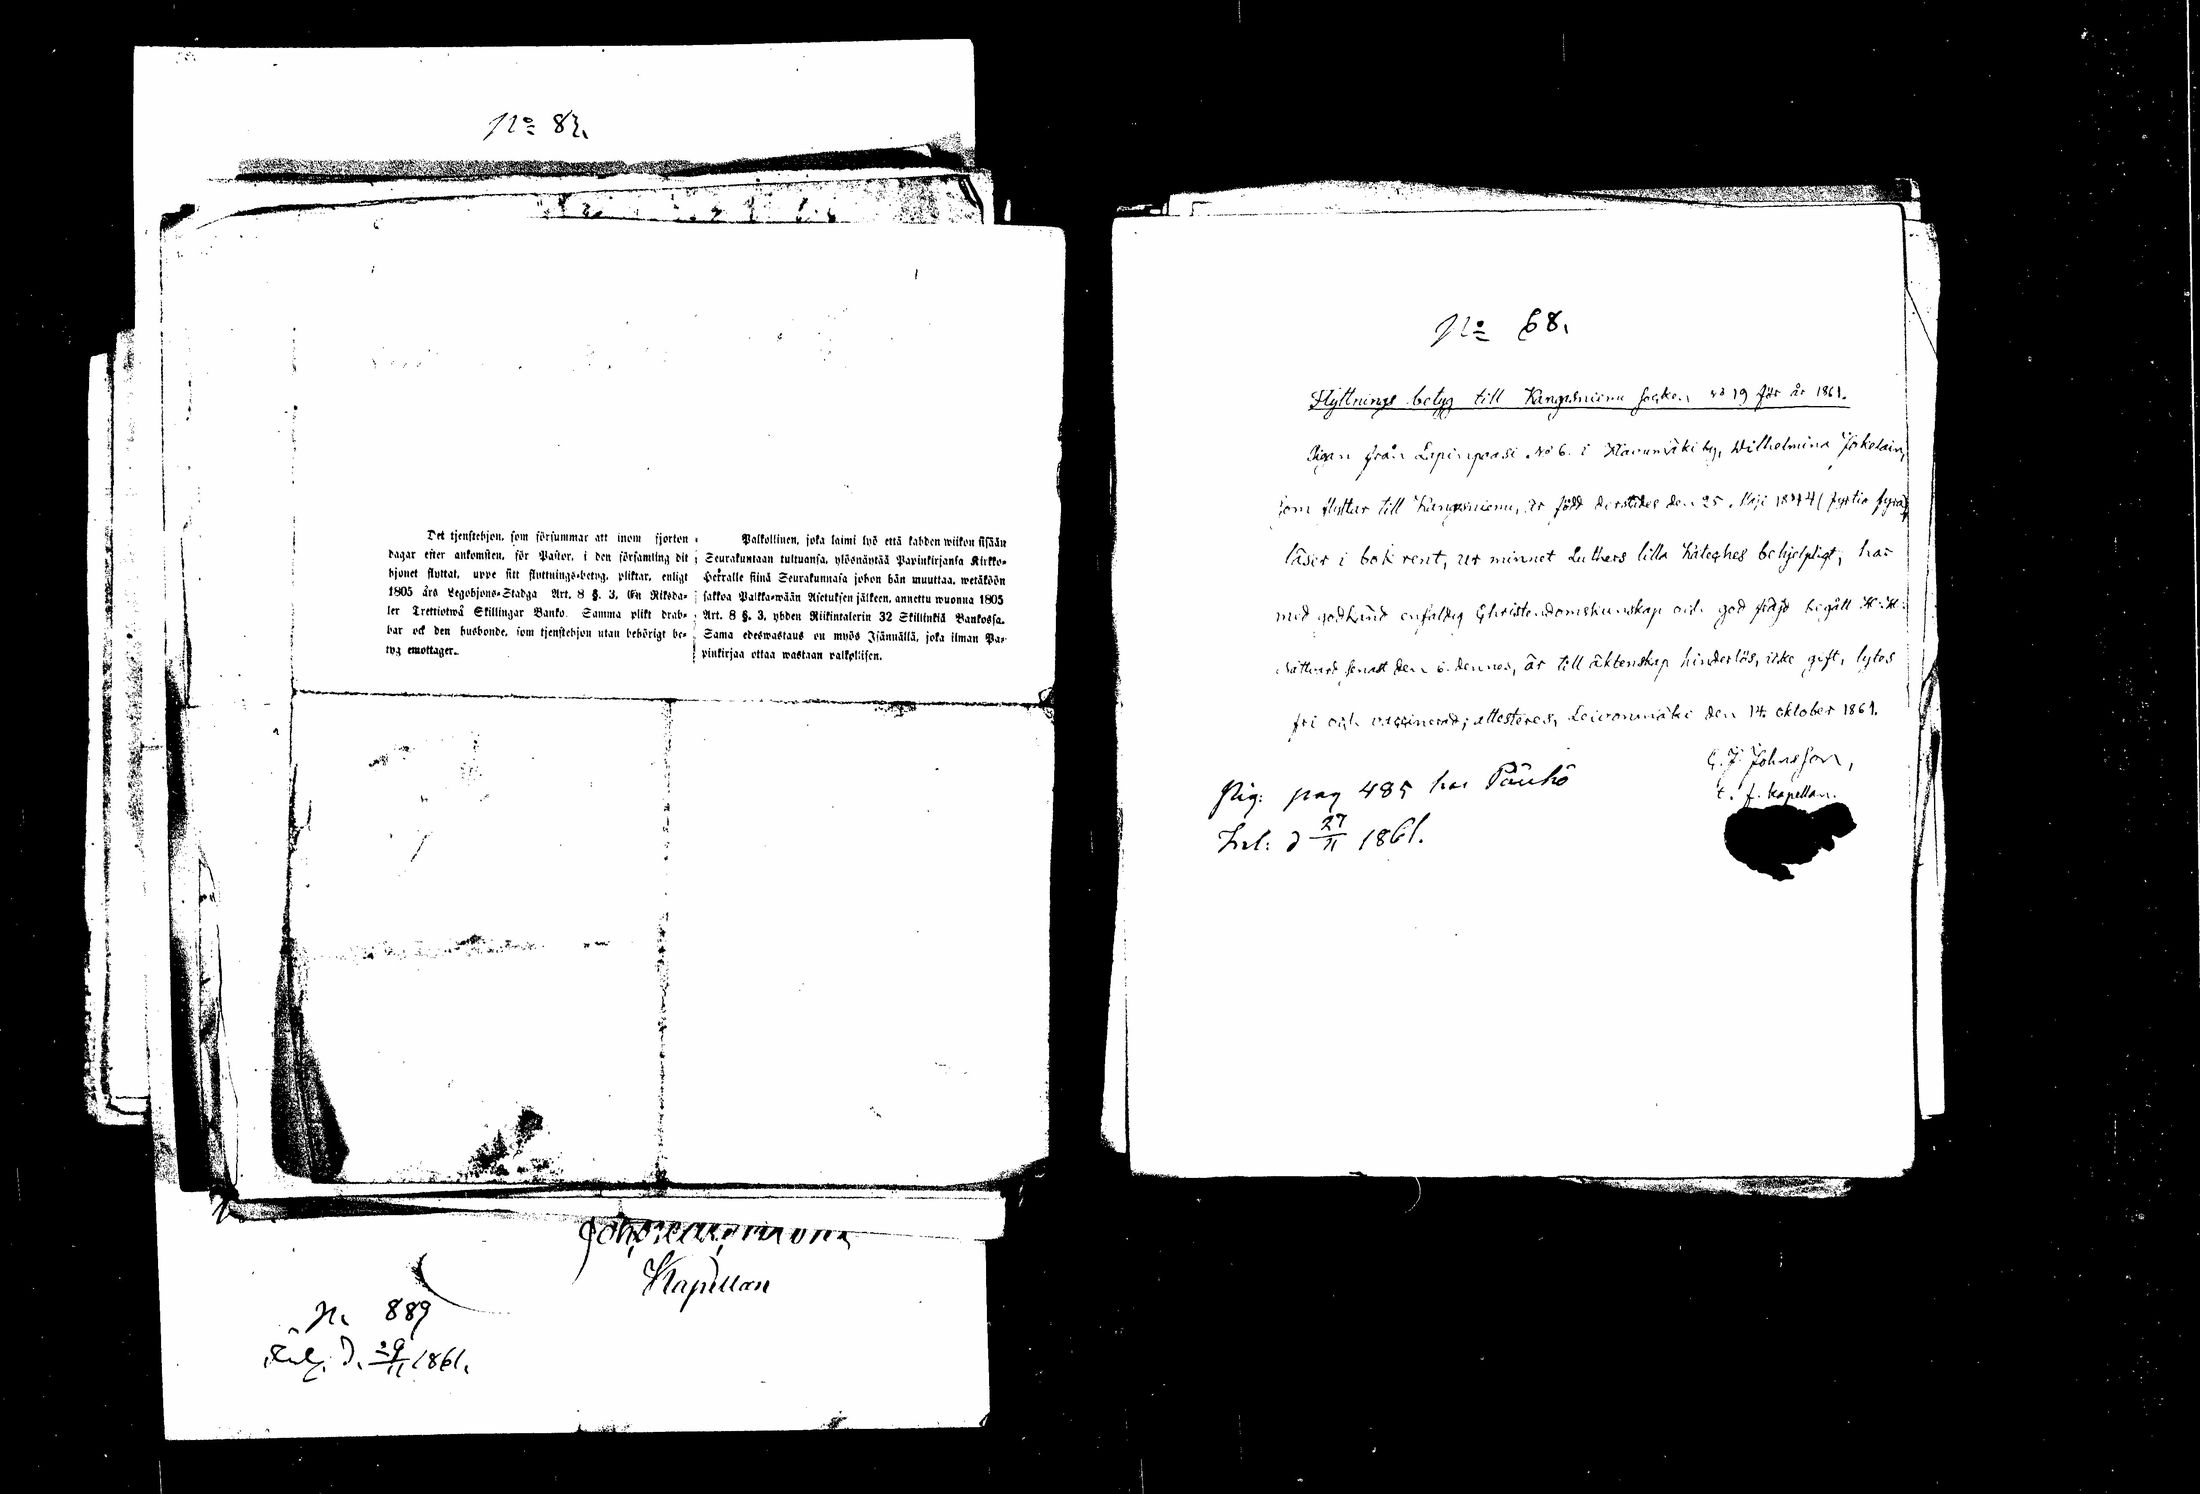 No 83.
Det tjenstehjon, som försummar att inom fjorton
dagar efter ankomsten, för Pastor, i den församling dit
hjonet flyttat, uppe sitt flyttnings-betyg, pliktar, enligt
1805 års Legohjons-Stadga Art. 8 §. 3, En Riksda-
ler Trettiotwå Skillingar Banko. Samma plikt drab-
bar ock den husbonde, som tjenstehjon utan behörigt be-
tyg emottager.
Palkollinen, joka laimi lyö että kahden wiikon sisään
Seurakuntaan tultuansa, ylösnäyttää Papinkirjansa Kirkko-
Herralle siinä Seurakunnasa johon hän muuttaa, wetäköön
sakkoa Palkka-wään Asetuksen jälkeen, annettu wuonna 1805
Art. 8 §. 3, yhden Riikintalerin 32 Skillinkiä Bankossa.
Sama edeswastaus on myös Isännällä, joka ilman Pa-
pinkirjaa ottaa wastaan palkollisen.
Kapellan
N. 889
Inl. d. 29/11 1861.
No 68.
Flyttnings betyg till Kangasniemi socken no 19 för år 1861.
Pigan från Lapinpaasi No 6. i Havumäki by, Wilhelmina
som flyttar till Kangasniemi, är född derstädes den 25 Maji 1844 (fyrtio fyra)
läser i bok rent, ur minnet Luthers lilla Kateches behjelpligt, har
med godkänd enfaldig Christendomskunskap och god fräjd begått H.H.
Nattvard senast den 6. dennes, är till äktenskap hinderlös, icke gift, lytes
fri och vaccinerad; attesteres, Leivonmäki den 14 oktober 1861.
C. J. Johnsson,
t. f. kapellan.
Pig: pag 485 hos
Inl: d 27/11 1861.